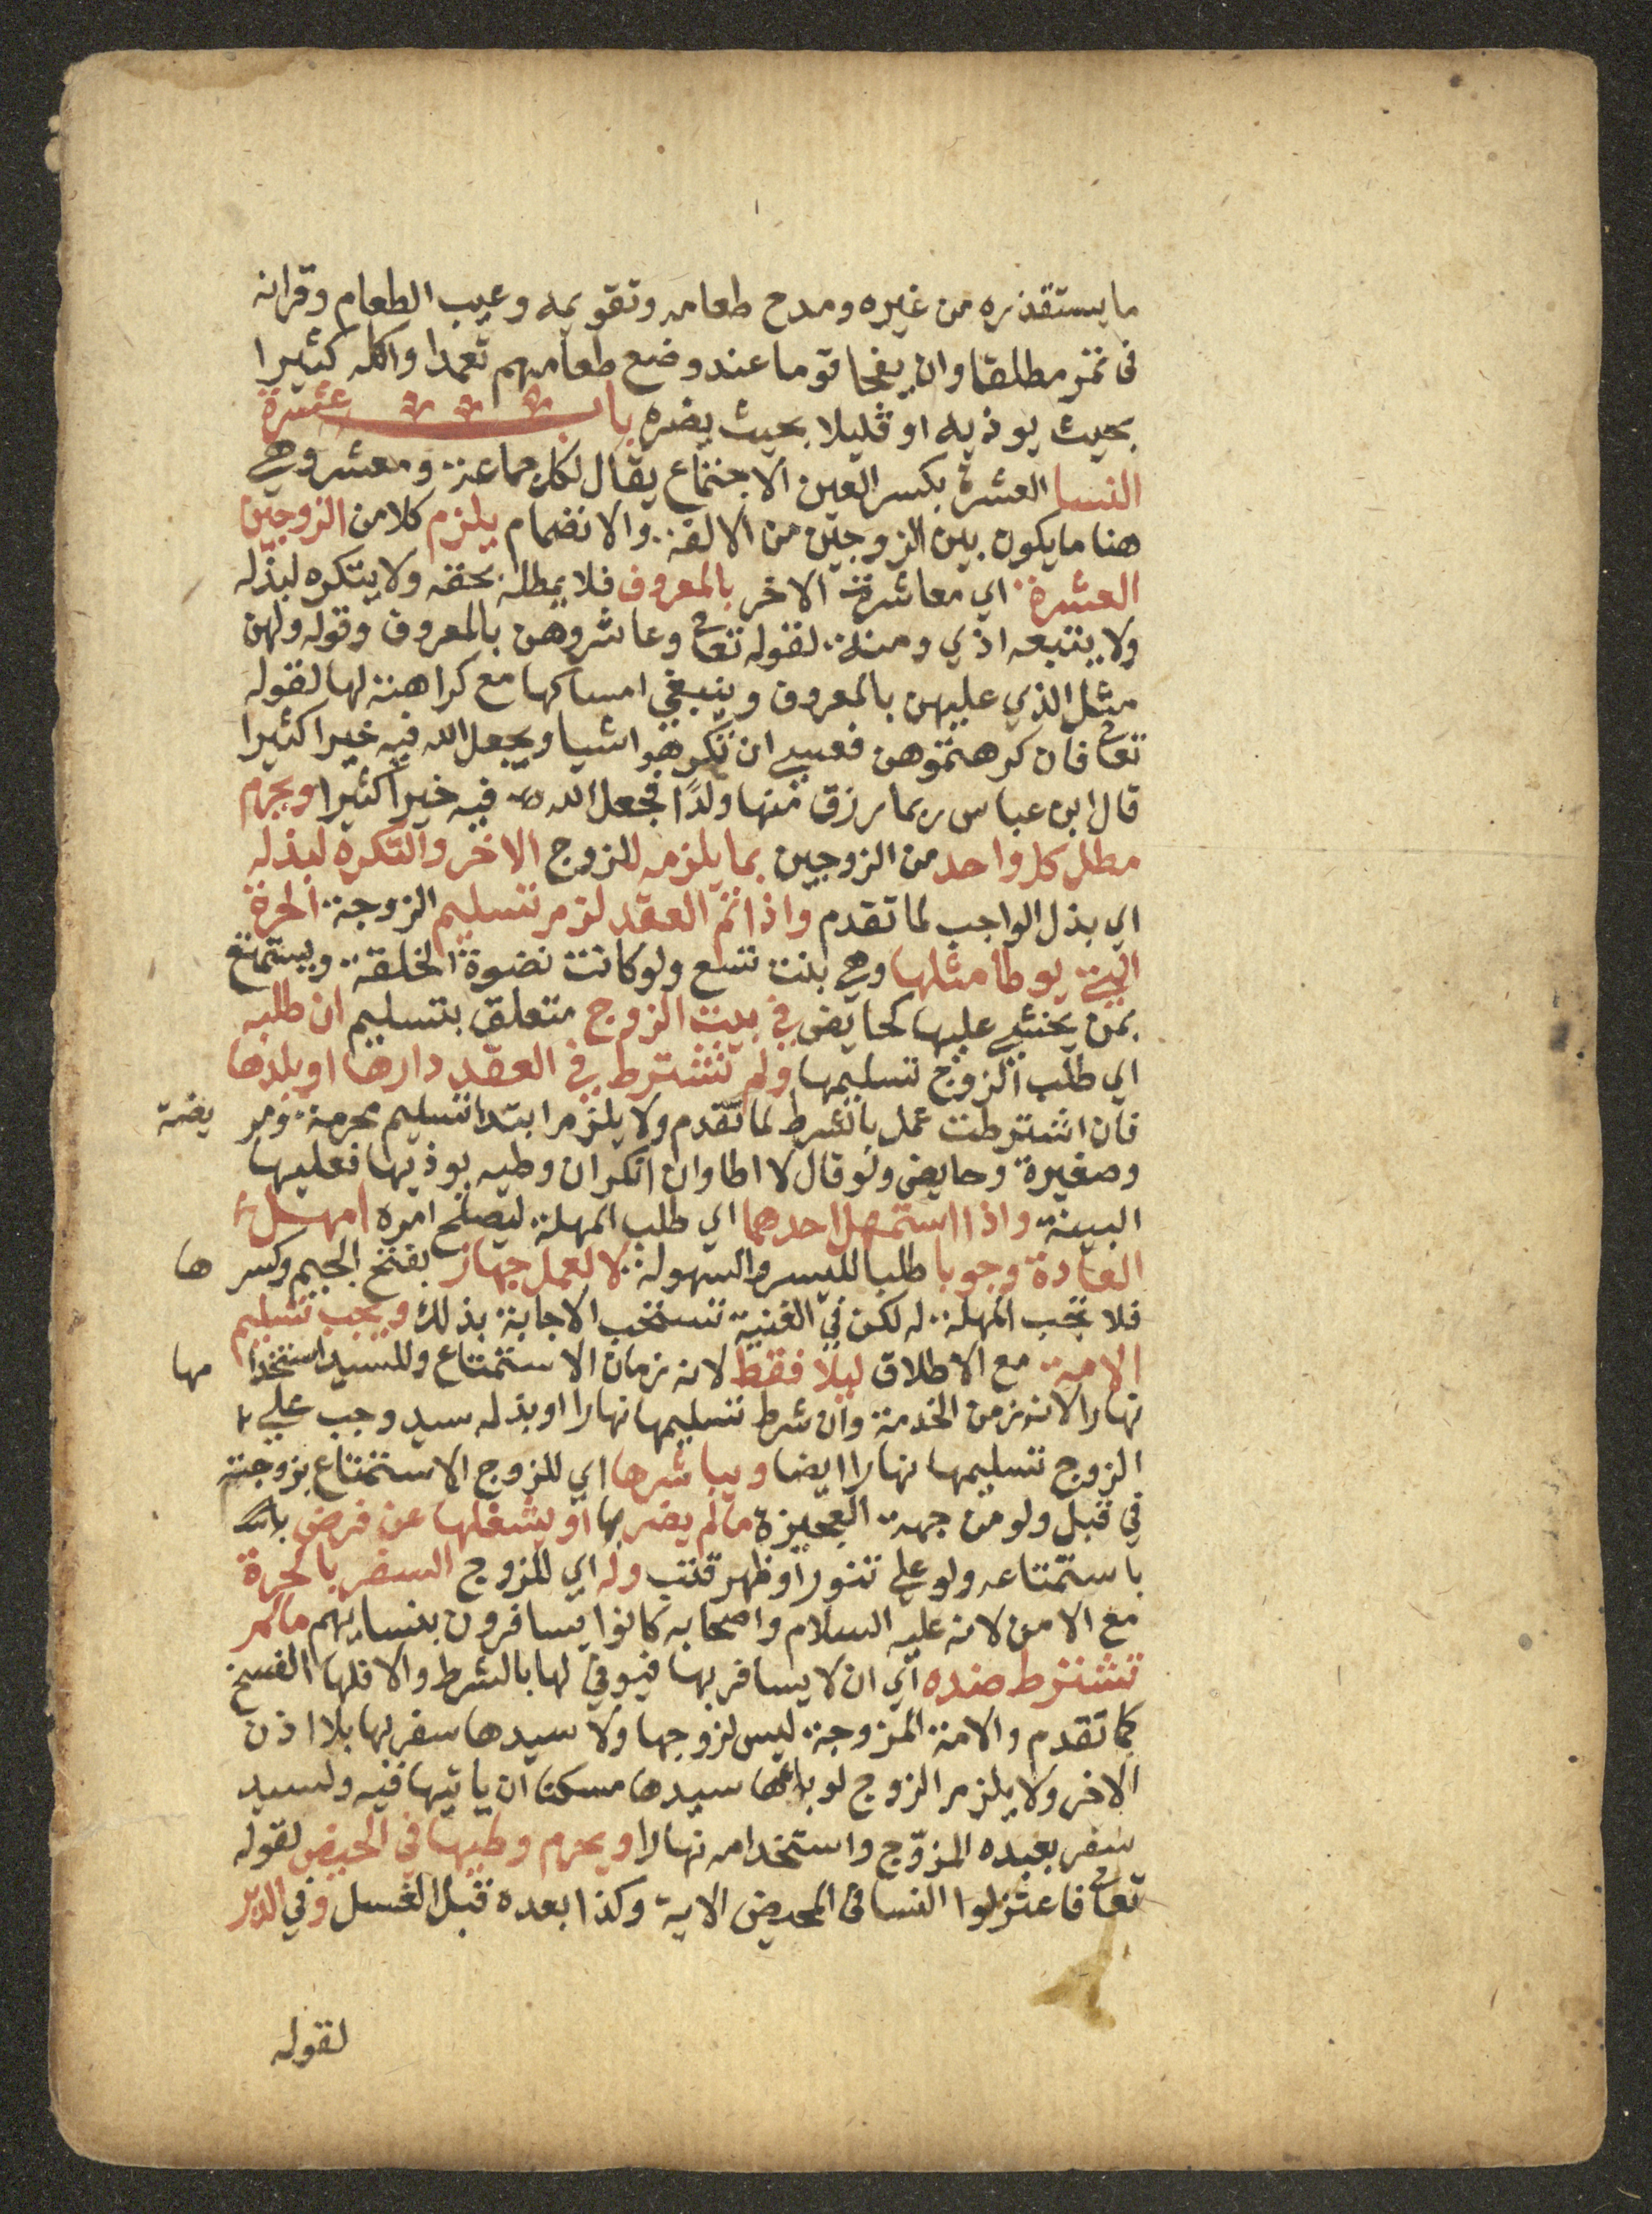 ما يستقذره من غيره ومدح طعامه وتقويمه وعيب الطعام وقرانه
فى تمر مطلقا وان يفجا قوما عند وضع طعامهم تعمدا واكله كثيرا
بحيث يوذيه او قليلا بحيث يضره باب عشرة
النسا العشرة بكسر العين الاجتماع يقال لكل جماعة ومعشر وهي
هنا ما يكون بين الزوجين من الالفة والانضمام يلزم كلا من الزوجين
العشرة اي معاشرة الاخر بالمعروف فلا يمطله بحقه ولا يتكره لبذله
ولا يتبعه اذي ومنة لقوله تعا وعاشروهن بالمعروف وقوله ولهن
مثل الذي عليهن بالمعروف وينبغي امساكها مع كراهته لها لقوله
تعا فان كرهتموهن فعسي ان تكرهوا شيا ويجعل الله فيه خيرا كثيرا
قال ابن عباس ربما رزق منها ولدًا فجعل الله فيه خيرا كثيرا ويحرم
مطل كل واحد من الزوجين بما يلزمه للزوج الاخر والتكره لبذله
اي بذل الواجب لما تقدم واذا تم العقد لزم تسليم الزوجة الحرة
التي يوطا مثلها وهي بنت تسع ولو كانت نضوة الخلقة ويستمتع
بمن يخشي عليها كحايض في بيت الزوج متعلق بتسليم ان طلبه
اي طلب الزوج تسليمها ولم تشترط في العقد دارها او بلدها
فان اشترطت عمل بالشرط لما تقدم ولا يلزم ابتدا تسليم محرمة ومر يضة
وصغيرة وحايض ولو قال لا اطا وان انكر ان وطيه يوذيها فعليها
البينة واذا استمهل احدهما اي طلب المهلة ليصلح امره امهل
العادة وجوبا طلبا لليسر والسهولة لا لعمل جهاز بفتح الجيم وكسر ها
فلا تجب المهلة له لكن في الغنية تستحب الاجابة بذلك ويجب تسليم
الامة مع الاطلاق ليلا فقط لانه زمان الاستمتاع وللسيد استخدا مها
نهارا لانه زمن الخدمة وان شرط تسليمها نهارا او بذله سيد وجب علي
الزوج تسليمها نهارا ايضا ويباشرها اي للزوج الاستمتاع بزوجته
في قبل ولو من جهة العجيزة ما لم يضر بها او يشغلها عن فرض
باستمتاعه ولو علي تنور او ظهر قتب وله اي للزوج السفر بالحرة
مع الامن لانه عليه السلام واصحابه كانوا يسافرون بنسايهم ما لم
تشترط ضده اي ان لا يسافر بها فيوفي لها بالشرط والا فلها الفسخ
كما تقدم والامة المزوجة ليس لزوجها ولا سيدها سفر بها بلا اذن
الاخر ولا يلزم الزوج لو سيدها مسكنا ان ياتيها فيه ولسيد
سفر بعبده المزوّج واستخدامه نهارا ويحرم وطيها في الحيض لقوله
تعا فاعتزلوا النسا فى المحيض الاية وكذا بعده قبل الغسل وفي الدبر
لقوله